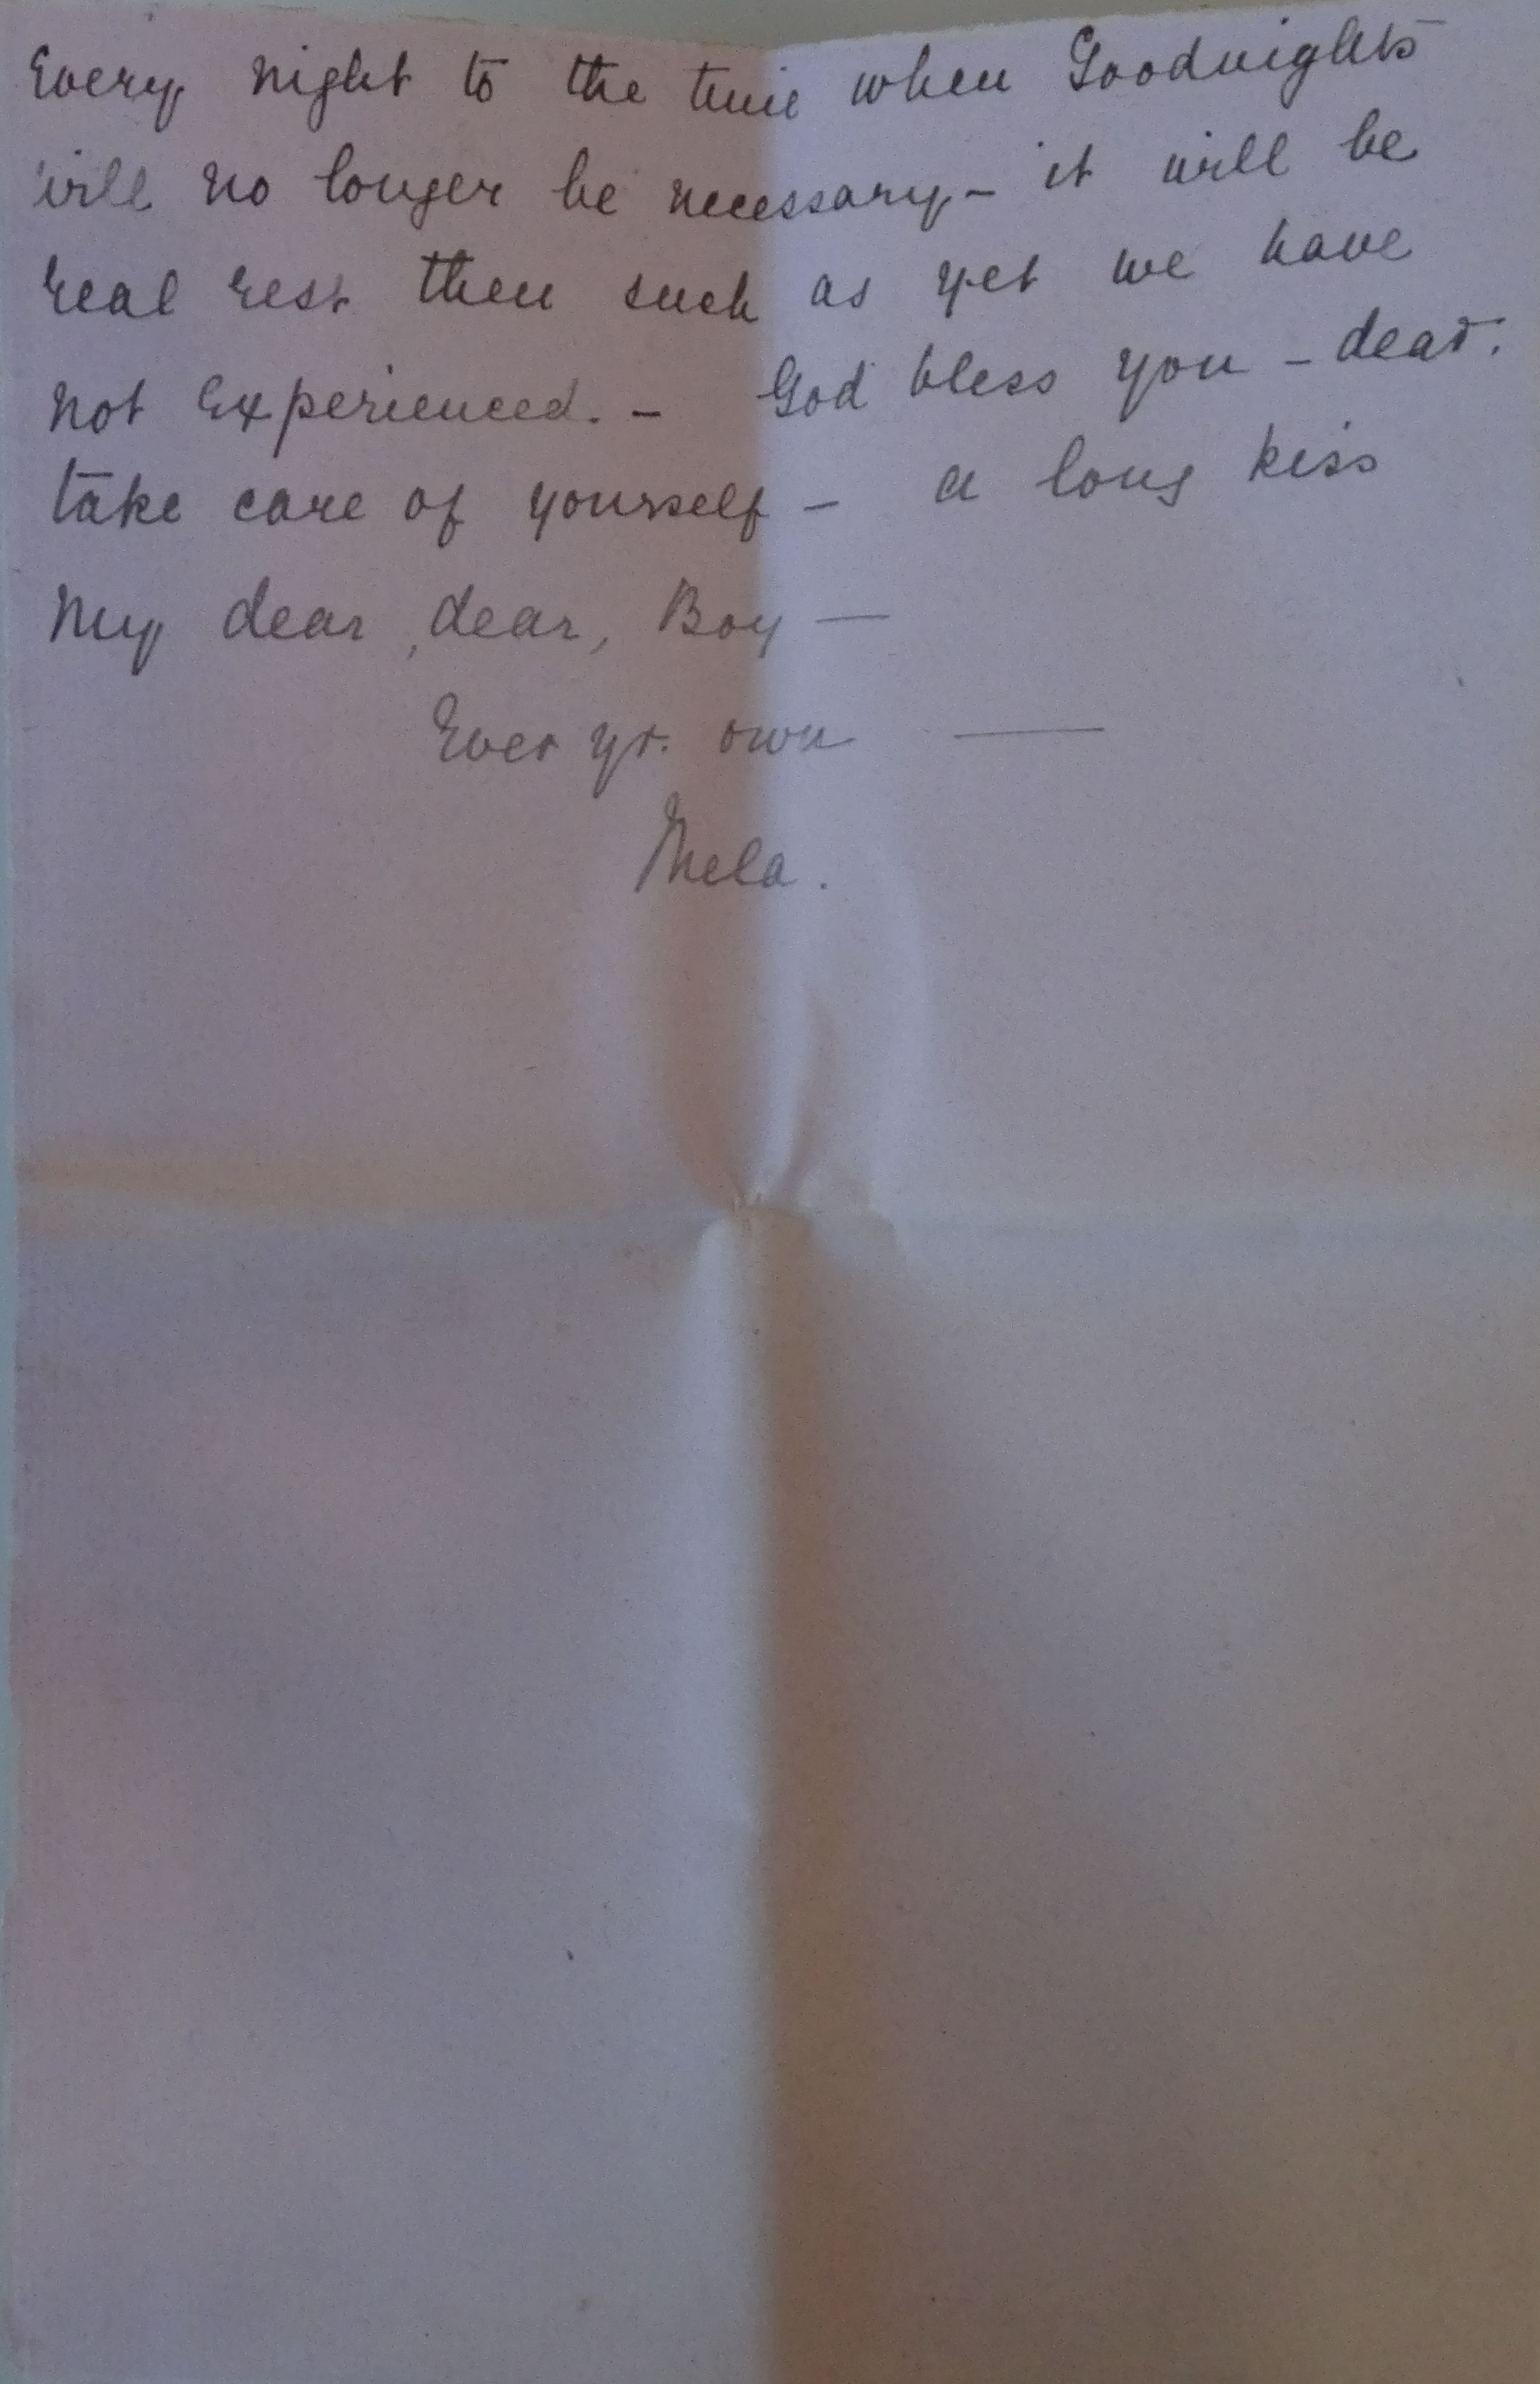 Every night to the time when Goodnights
will no longer be necessary - it will be
real rest then such as yet we have
not experienced. - God bless you - dear.
take care of yourself - a long kiss
My dear, dear, Boy —
Ever yr. own —
Mela.